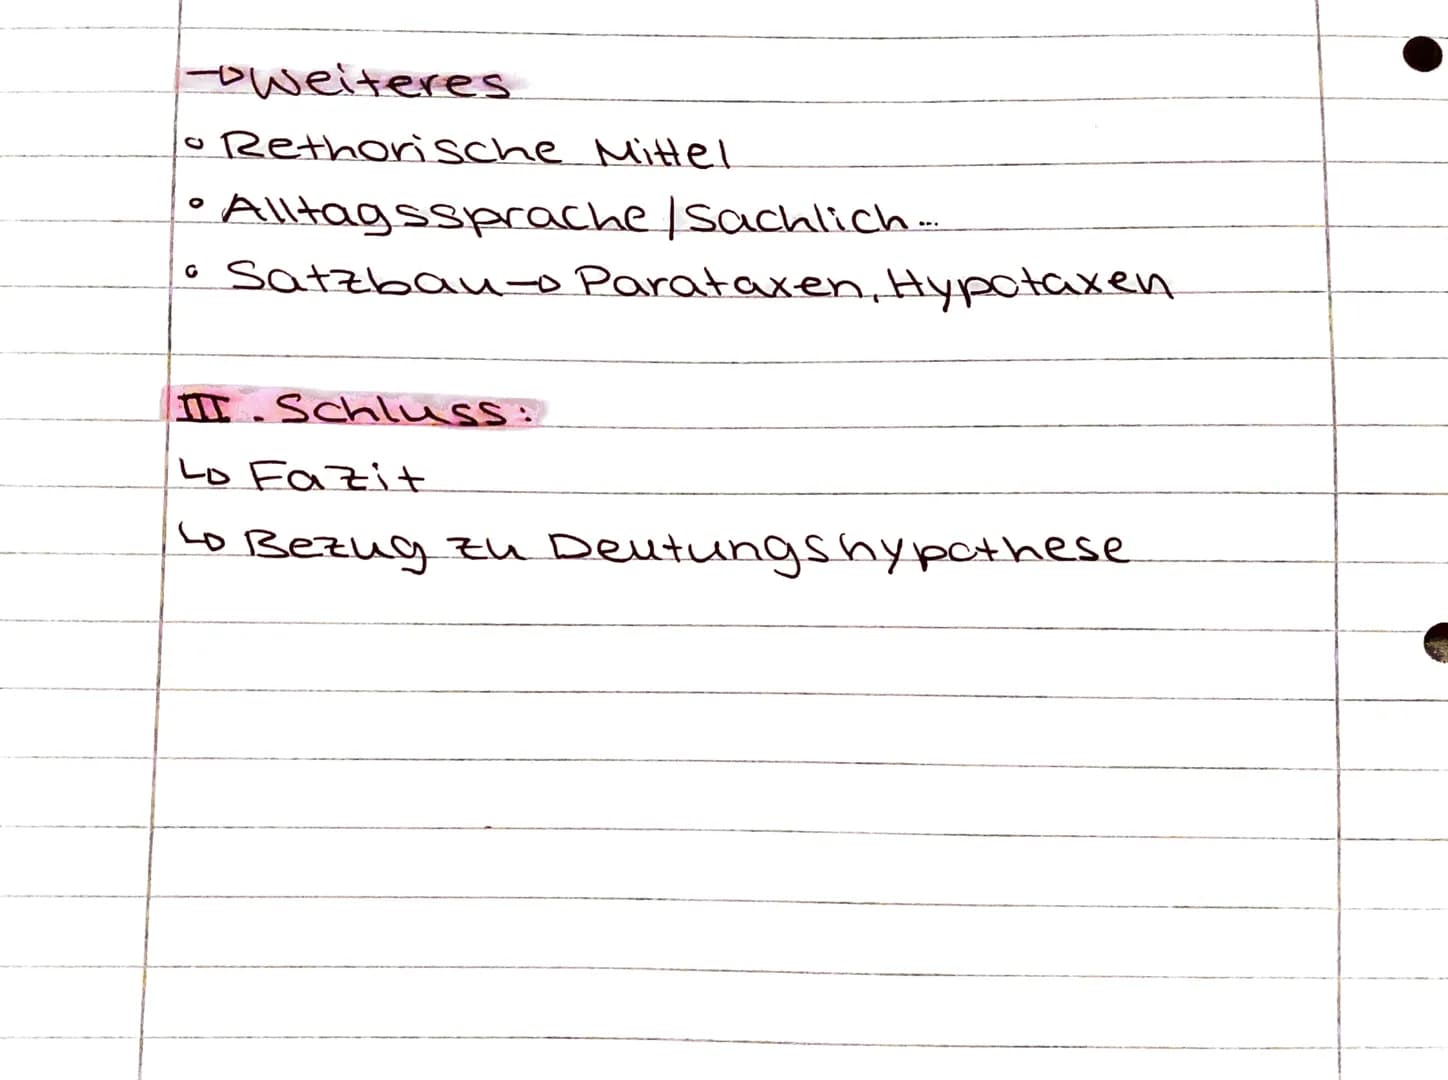 →Weiteres
◦ Rethorische Mittel
◦ Alltagssprache/Sachlich...
◦ Satzbau→ Parataxen, Hypotaxen
III. Schluss:
↳ Fazit
↳ Bezug zu Deutungshypothese